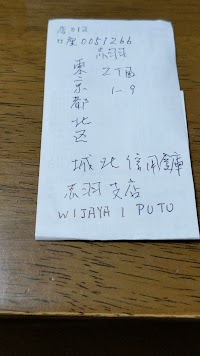 店 012
口座 0051266
東京都北区
赤羽
2丁目
1-9
城北信用金庫
赤羽支店
WIJAYA I PUTU